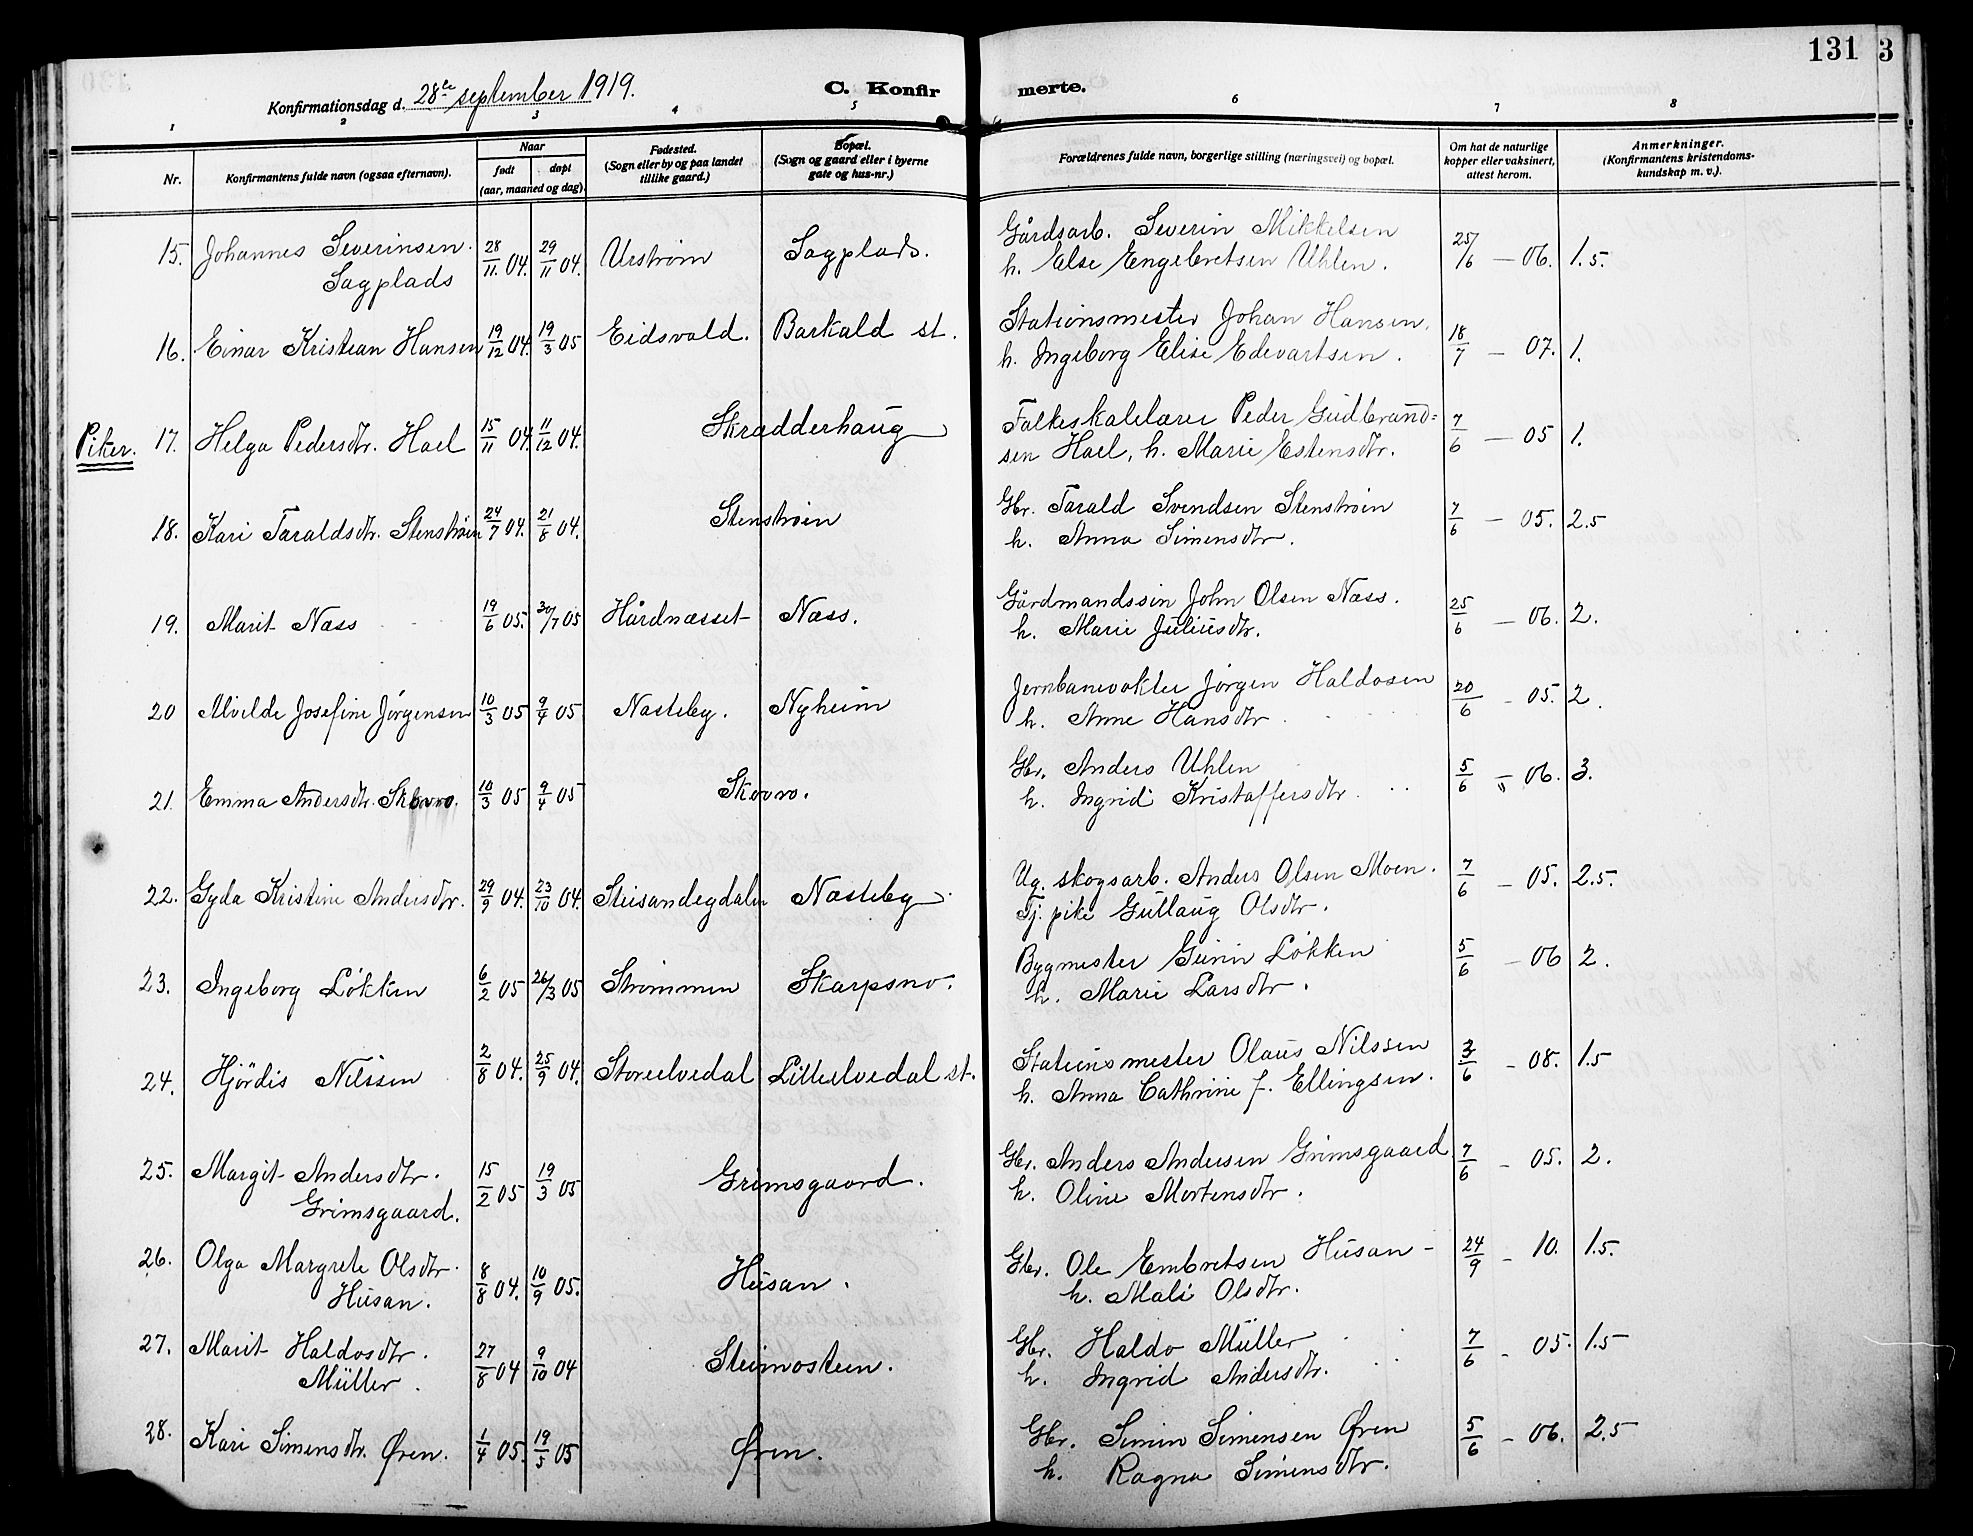 131 3
Konfirmationsdag d. 28de september 1919.
C. Konfirmerte.
1 2 3 4 5 6 7 8
Nr.
Konfirmantens fulde navn (ogsaa efternavn).
Naar
født døpt
(aar, maaned og dag).
Fødested.
(Sogn eller by og paa landet
tillike gaard.)
Bopæl.
(Sogn og gaard eller i byerne
gate og hus-nr.)
Forældrenes fulde navn, borgerlige stilling (næringsvei) og bopæl.
Om hat de naturlige
kopper eller vaksinert,
attest herom.
Anmerkninger.
(Konfirmantens kristendoms-
kundskap m. v.).
15. Johannes Severinsen 28/11 04. 29/11 04. Urstrøm Sagplads. Gårdsarb. Severin Mikkelsen 25/6 — 06. 1.5.
Sagplads h. Else Engebretsen Uhlen.
16. Einar Kristian Hansen 19/12 04. 19/3 05 Eidsvold. Barkald st. Stationsmester Johan Hansen, 18/7 — 07. 1.
h. Ingeborg Elise Edevartsen.
Piker. 17. Helga Pedersdtr. Hoel 15/11 04. 11/12 04. Skradderhaug Folkeskolelærer Peder Gudbrand= 7/6 — 05 1.
sen Hoel, h. Marie Estensdtr.
18. Kari Taraldsdtr. Stenstrøin 24/7 04. 21/8 04. Stenstrøin Gbr. Tarald Svendsen Stenstrøin 7/6 — 05. 2.5
h. Anna Simensdtr.
19. Marit Næss 19/6 05. 30/7 05 Hårdnæsset Næss. Gårdmandssøn John Olsen Næss. 25/6 — 06. 2.
h. Marie Juliusdtr.
20 Alvilde Josefine Jørgensen 10/3 05 9/4 05 Næsteby. Nyheim Jernbanevokter Jørgen Haldosen 20/6 - 05. 2.
h. Anne Hansdtr
21. Emma Andersdtr. Skovro. 10/3 05 9/4 05 Skovro. Gbr. Anders Uhlen 5/6 — 06. 3.
h. Ingrid Kristoffersdtr.
22. Gyda Kristine Andersdtr. 29/9 04. 23/10 04. Steisandegdalen Næsteby Ug. skogsarb. Anders Olsen Moen. 7/6 — 05. 2.5.
Tj. pike Gullaug Olsdtr.
23. Ingeborg Løkken 6/2 05 26/3 05 Strømmen Skarpsno. Bygmester Gunin Løkken 5/6 — 06 2.
h. Marie Larsdtr.
24. Hjördis Nilssen 2/8 04. 25/9 04. Storeelvedal Lilleelvedal st. Stationsmester Olaus Nilssen 3/6 - 08. 1.5
h. Anna Cathrine f. Ellingsen.
25. Margit Andersdtr. 15/2 05 19/3 05 Grimsgaard. Gbr. Anders Andersen Grimsgaard 7/6 - 05. 2.
Grimsgaard. h. Oline Mortensdtr.
26. Olga Margrete Olsdtr. 8/8 04. 10/9 05. Husan. Gbr. Ole Embretsen Husan - 24/9 - 10. 1.5.
Husan. h. Mali Olsdtr.
27. Marit Haldosdtr. 27/8 04 9/10 04 Steimosteen. Gbr. Haldo Müller 7/6 - 05. 1.5
Müller. h. Ingrid Andersdtr.
28. Kari Simensdtr. Øren. 1/4 05. 19/5 05 Øren. Gbr. Simen Simensen Øren 5/6 - 06. 2.5
h. Ragna Simensdtr.